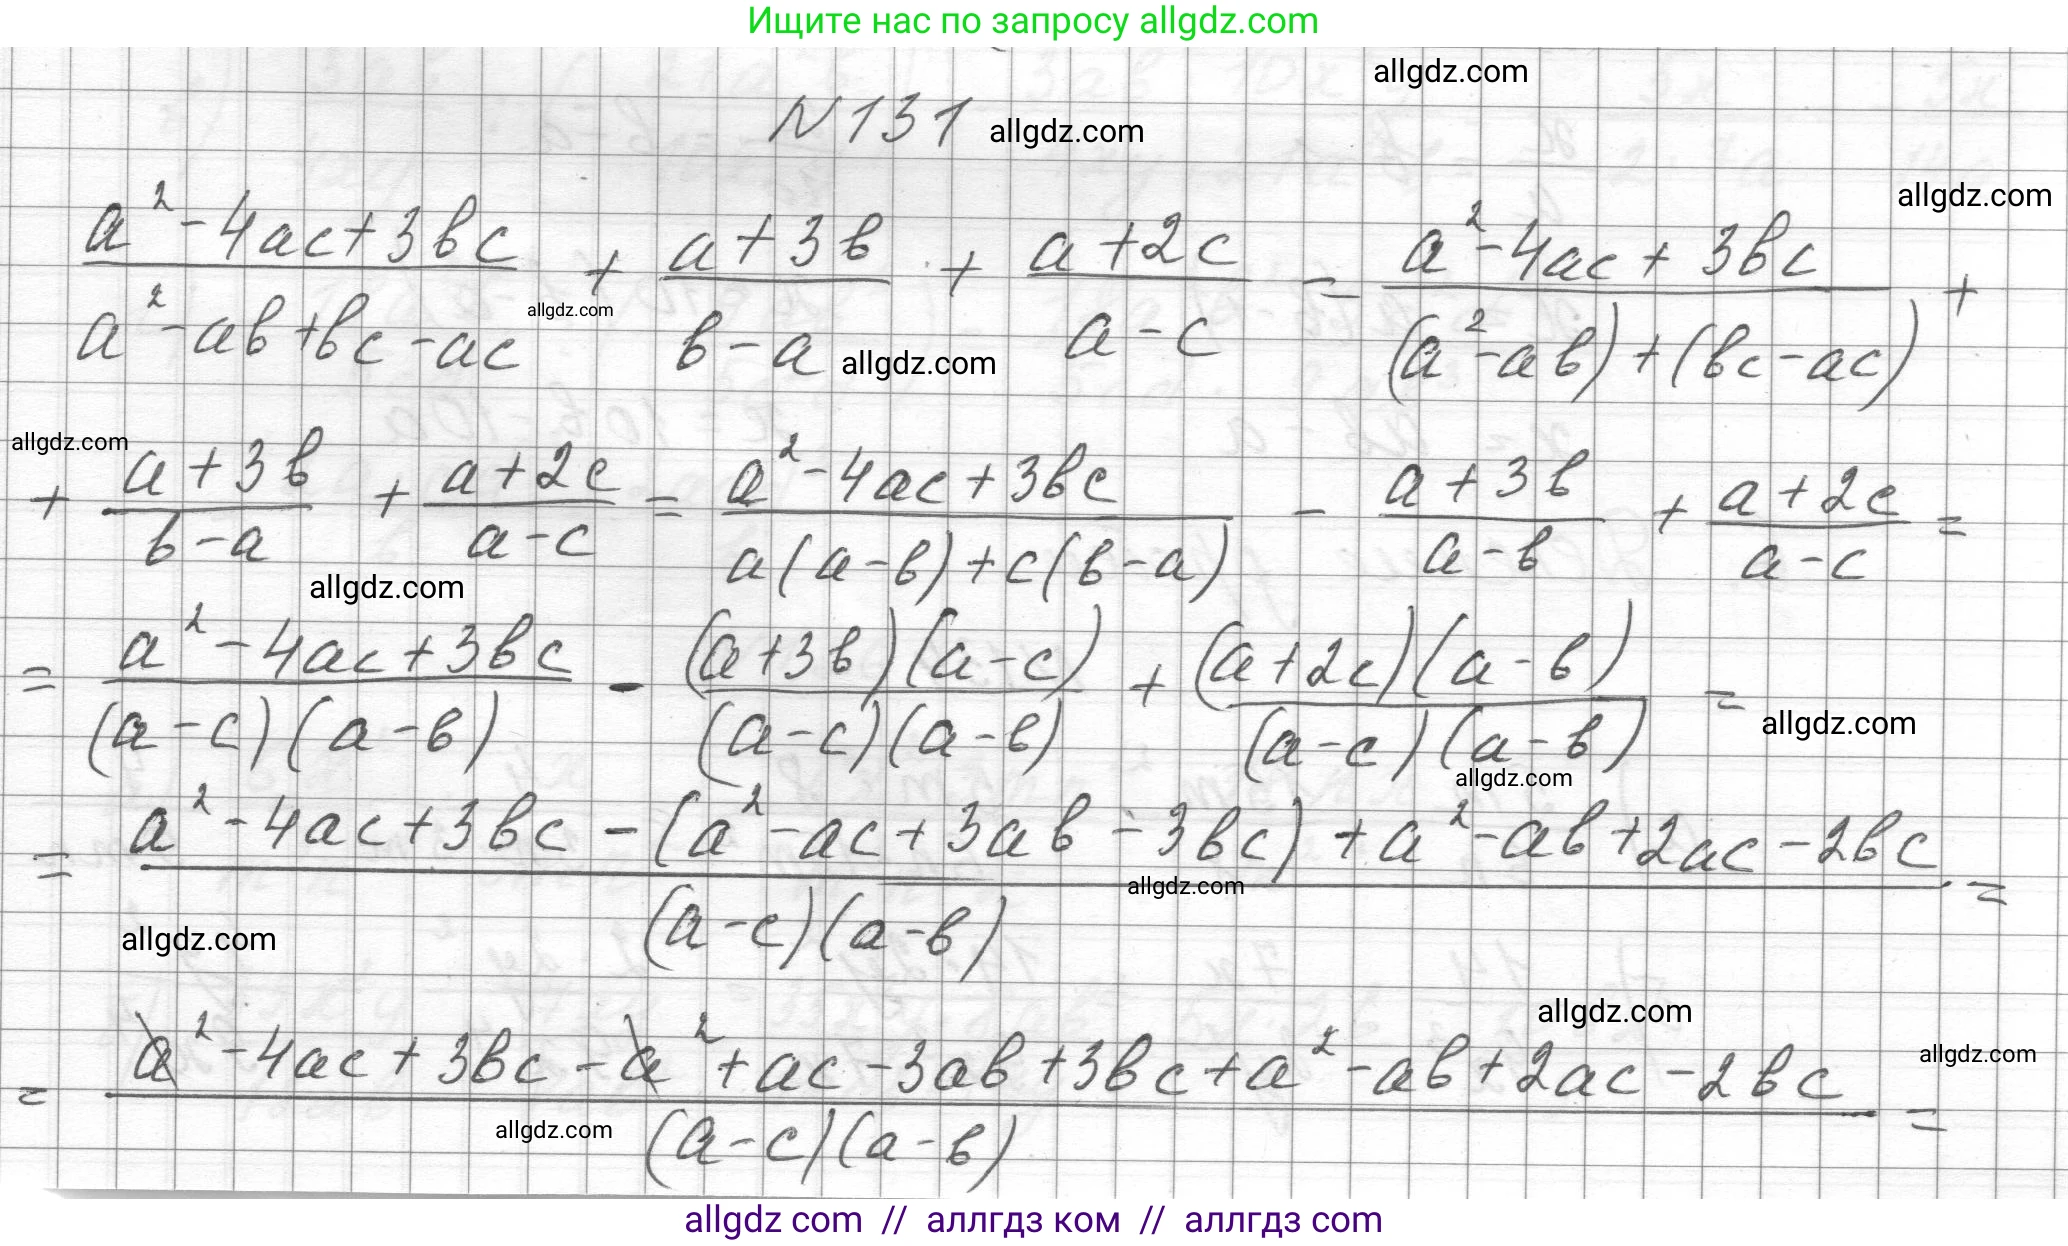 Ищите нас по запросу allgdz.com
allgdz.com
N 131 allgdz.com
allgdz.com
(a² - 4ac + 3bc)/(a² - ab + bc - ac) + (a + 3b)/(b - a) + (a + 2c)/(a - c) = (a² - 4ac + 3bc)/((a² - ab) + (bc - ac)) +
allgdz.com
allgdz.com
allgdz.com
+ (a + 3b)/(b - a) + (a + 2c)/(a - c) = (a² - 4ac + 3bc)/(a(a - b) + c(b - a)) - (a + 3b)/(a - b) + (a + 2c)/(a - c) =
allgdz.com
= (a² - 4ac + 3bc)/((a - c)(a - b)) - ((a + 3b)(a - c))/((a - c)(a - b)) + ((a + 2c)(a - b))/((a - c)(a - b)) =
allgdz.com
allgdz.com
= (a² - 4ac + 3bc - (a² - ac + 3ab - 3bc) + a² - ab + 2ac - 2bc)/((a - c)(a - b)) =
allgdz.com
allgdz.com
allgdz.com
allgdz.com
= (a² - 4ac + 3bc - a² + ac - 3ab + 3bc + a² - ab + 2ac - 2bc)/((a - c)(a - b)) =
allgdz.com
allgdz com // аллгдз ком // аллгдз com